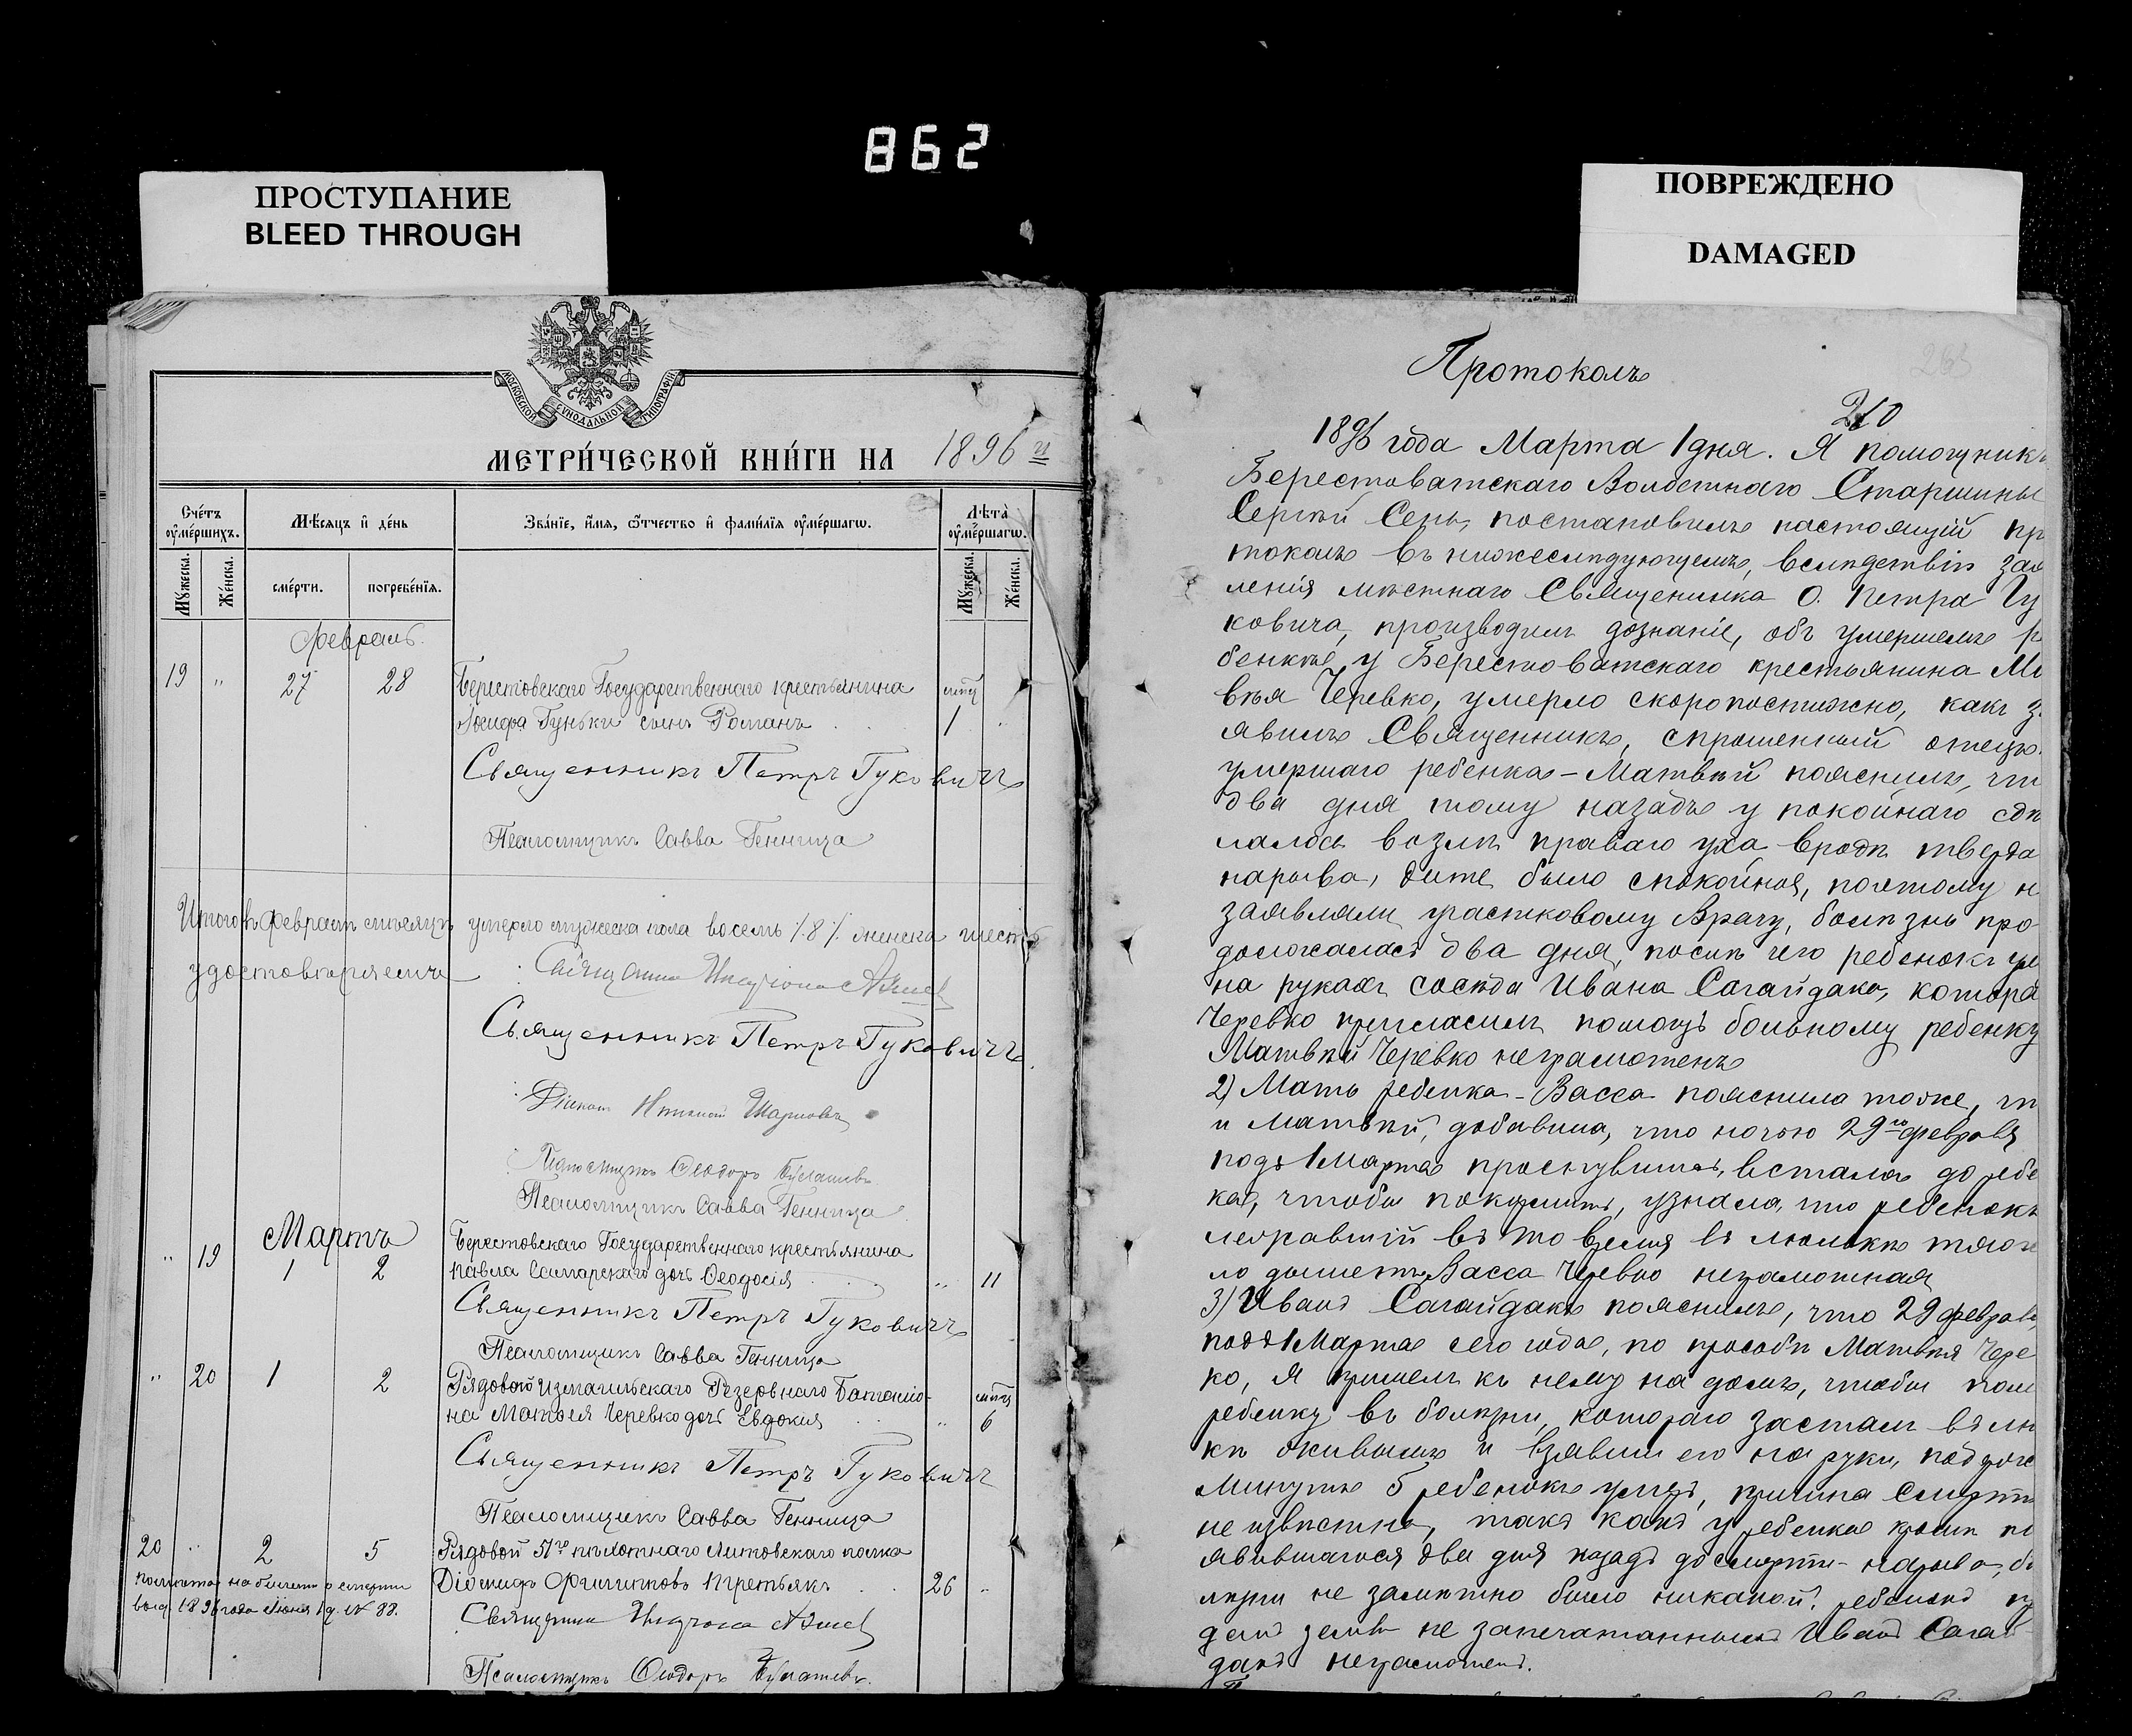 862
ПРОСТУПАНИЕ
BLEED THROUGH
ПОВРЕЖДЕНО
DAMAGED
МОСКОВСКОЙ СѴНОДАЛЬНОЙ ТИПОГРАФІИ
МЕТРИ́ЧЕСКОЙ КНИ́ГИ НА 1896 г
Сче́тъ ᲂу҆ме́ршихъ.
Мѣ́сяцъ и҆ де́нь
Зва́нїе, и҆́мя, ѻ҆́тчество и҆ фами́лїя ᲂу҆ме́ршагѡ.
Лѣ́та ᲂу҆ме́ршагѡ.
Мꙋ́жеска.
Же́нска.
сме́рти.
погребе́нїя.
Мꙋ́жеска.
Же́нска.
Февраль.
19 " 27 28 Берестовскаго Государственнаго крестьянина
Іосифа Гуньки сынъ Романъ 1 "
Священникъ Петръ Гуковичъ
Псаломщикъ Савва Генница
Итого въ Февралѣ мѣсяцѣ умерло мужеска пола восемь /.8/. женска шесть
удостовѣряемъ
Священникъ
Священникъ Петръ Гуковичъ
Діаконъ
Псаломщикъ Ѳеодоръ
Псаломщикъ Савва Генница
Мартъ
" 19 1 2 Берестовскаго Государственнаго крестьянина
Павла Самарскаго дочь Ѳеодосія " 11
Священникъ Петръ Гуковичъ
Псаломщикъ Савва Генница
" 20 1 2 Рядовой Измаильскаго Резервнаго Баталіо-
на Матвея Черевко дочь Евдокия " 6
Священникъ Петръ Гуковичъ
Псаломщикъ Савва Генница
20 " 2 5 Рядовой 51го пѣхотнаго Литовскаго полка
Діомидъ Филипповъ Третьякъ 26 "
билетъ о смерти
1896 года Іюня 1 д. № 88.
Священникъ
Псаломщикъ Ѳеодоръ
Протоколъ
210
1896 года Марта 1 дня. Я помощникъ
Берестоватскаго Волостнаго Старшины
Сергѣй Сень, постановилъ настоящій пр
токолъ въ нижеслѣдующемъ, вслѣдствіи зая
ленія мѣстнаго Священника О. Петра Гу
ковича, производилъ дознаніе, объ умершемъ р
бенкѣ, у Берестоватскаго крестьянина Ма
вѣя Черевко, умерло скоропостижно, какъ з
явилъ Священникъ, спрошенный отецъ
умершаго ребенка - Матвѣй пояснилъ, чт
два дня тому назадъ у покойнаго сдѣ
лалось возлѣ праваго уха вродѣ тверда
нарыва, дитё было спокойноя, поэтому н
заявляли участковому Врачу, болѣзнь про-
должалась два дня, послѣ чего ребенокъ ум
на рукахъ сосѣда Ивана Сагайдака, котора
Черевко пригласилъ помощь больному ребенку
Матвѣй Черевко неграмотенъ
2) Мать ребенка - Васса пояснила тоже, чт
и Матвѣй, добавила, что ночью 29го февраля
подъ 1 Марта проснувшись, встала до ребе
ка, чтобы покормить, узнала, что ребенокъ
лежавшій въ то время въ люлькѣ тяже
ло дышетъ, Васса Черевко неграмотная
3) Иванъ Сагайдакъ пояснилъ, что 29 февраля
подъ 1 Марта сего года, по просьбѣ Матвѣя Чере
ко, я пришелъ къ нему на домъ, чтобы пом
ребенку въ болѣзни, котораго засталъ въ лю
кѣ живымъ и взявши его на руки,
минутъ 5 ребенокъ умеръ, причина смерти
неизвѣстна, такъ какъ у ребенка кромѣ по
явившагося два дня назадъ до смерти - нарыва, бо
лѣзни не замѣтно было никакой. ребенокъ п
данъ землѣ не запечатаннымъ Иванъ Сагай
дакъ неграмотенъ.